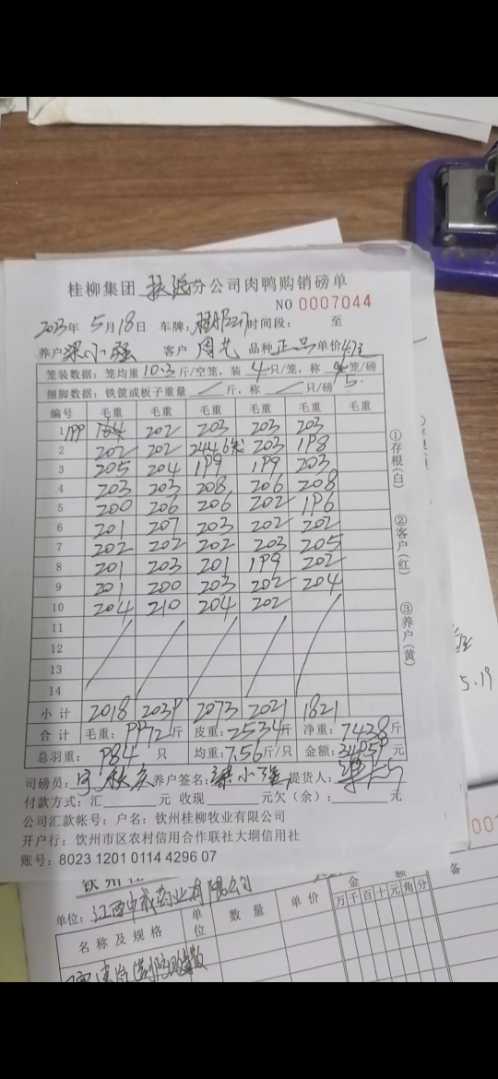 桂柳集团 分公司肉鸭购销磅单
NO 0007044
2023年 5月18日 车牌: 时间段: 至
养户 梁小强 客户 周光 品种 正品 单价
笼装数据:笼均重 10.3 斤/空笼,装 4 只/笼,称 笼/磅
捆脚数据:铁筐或板子重量 / 斤,称 / 只/磅 5.
编号 毛重 毛重 毛重 毛重 毛重 毛重
1 199 202 203 203 203
2 202 202 244 6 203 198
3 205 204 199 199 203
4 203 203 208 206 208
5 200 206 206 202 196
6 201 207 203 202 202
7 202 202 202 203 205
8 201 203 201 199 202
9 201 200 203 202 204
10 204 210 204 202
11
12
13
14
小计 2018 2039 2073 2021 1821
合计 毛重: 9972斤 皮重: 2534斤 净重: 7438斤
总羽重: 984 只 均重: 7.56斤/只 金额: 元
司磅员: 养户签名: 梁小强 提货人:
付款方式:汇 元 收现 元欠(余): 元
公司汇款帐号:户名:钦州桂柳牧业有限公司
开户行:钦州市区农村信用合作联社大垌信用社
账号:8023 1201 0114 4296 07
①存根(白)
②客户(红)
③养户(黄)
5.19
单位:江西中成药业有限公司
名称及规格 单位 数量 单价 金额 备
万千百十元角分